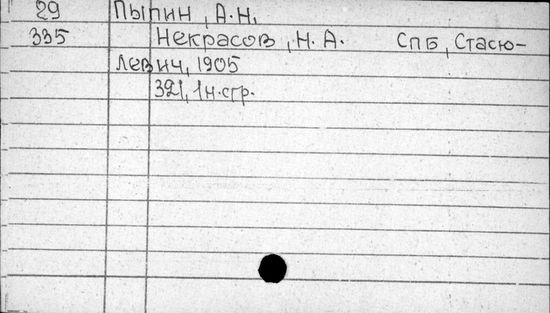 29 Пыпин, А.Н.
335 Некрасов, Н.А. СПБ, Стасю-
левич, 1905
321, 1н.стр.